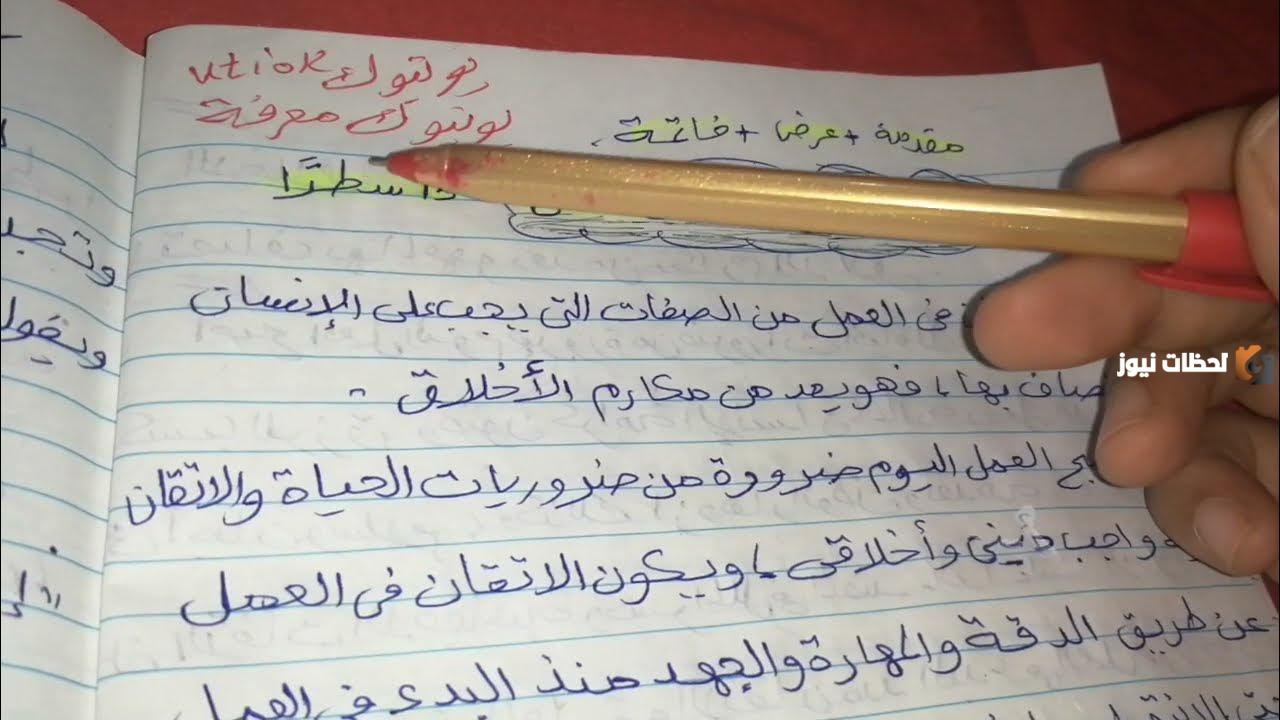 utiok يوتيوك
يوتيوك معرفة
مقدمة + عرض + خاتمة
سطرًا
فى العمل من الصفات التى يجب على الإنسان
بها، فهو يعد من مكارم الأخلاق
العمل اليوم ضرورة من ضروريات الحياة والاتقان
واجب دينى وأخلاقى، ويكون الاتقان فى العمل
عن طريق الدقة والمهارة والجهد منذ البدء فى العمل
وتجد
ويقول
لحظات نيوز